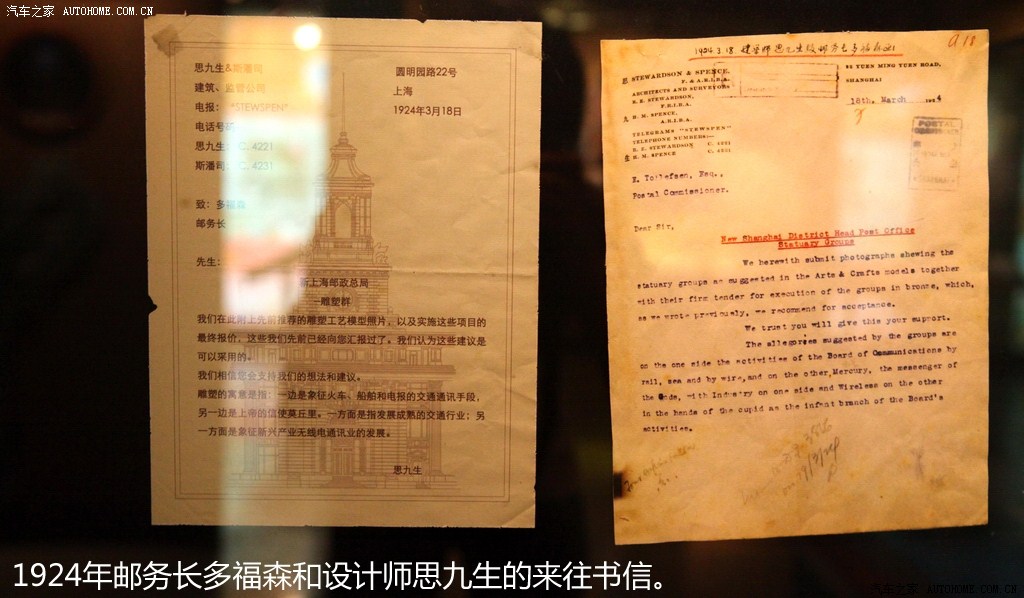 汽车之家 AUTOHOME.COM.CN
思九生&斯潘司
圆明园路22号
建筑、监督公司
上海
电报: "STEWSPEN"
1924年3月18日
电话号码
思九生: C. 4221
斯潘司: C. 4231
致: 多福森
邮务长
先生:
新上海邮政总局
—雕塑群
我们在此附上先前推荐的雕塑工艺模型照片，以及实施这些项目的
最终报价，这些我们先前已经向您汇报过了。我们认为这些建议是
可以采用的。
我们相信您会支持我们的想法和建议。
雕塑的寓意是指: 一边是象征火车、船舶和电报的交通通讯手段，
另一边是上帝的信使莫丘里。一方面是指发展成熟的交通行业; 另
一方面是象征新兴产业无线电通讯业的发展。
思九生
1924.3.18 建筑师思九生致邮务长多福森函
STEWARDSON & SPENCE,
F. & A.R.I.B.A.
ARCHITECTS AND SURVEYORS
R. E. STEWARDSON,
F.R.I.B.A.
H. M. SPENCE,
A.R.I.B.A.
TELEGRAMS "STEWSPEN"
TELEPHONE NUMBERS:—
R. E. STEWARDSON C. 4221
H. M. SPENCE C. 4231
YUEN MING YUEN ROAD,
SHANGHAI
18th. March
POSTAL
E. Tollefsen, Esq.,
Postal Commissioner.
Dear Sir,
New Shanghai District Head Post Office
Statuary Groups
We herewith submit photographs shewing the
statuary groups as suggested in the Arts & Crafts models together
with their firm tender for execution of the groups in bronze, which,
as we wrote previously, we recommend for acceptance.
We trust you will give this your support.
The allegories suggested by the groups are
on the one side the activities of the Board of Communications by
rail, sea and by wire, and on the other, Mercury, the messenger of
the Gods, with Industry on one side and Wireless on the other
in the hands of the cupid as the infant branch of the Board's
activities.
1924年邮务长多福森和设计师思九生的来往书信。
汽车之家 AUTOHOME.COM.CN